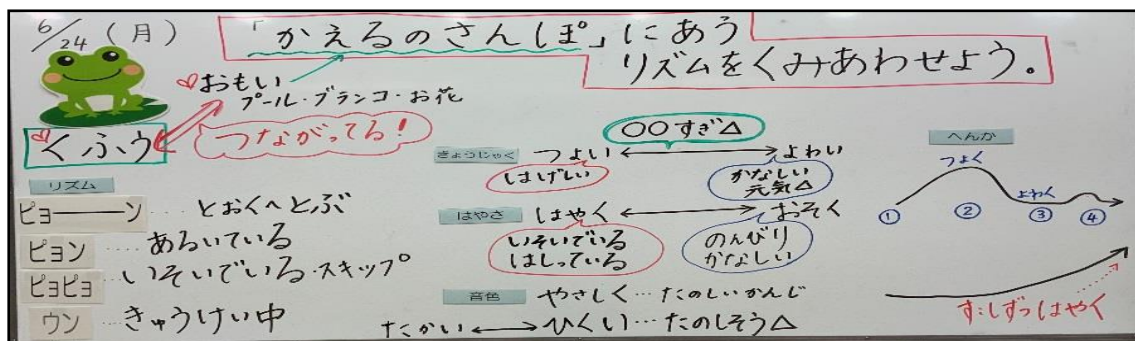 6/24(月)
「かえるのさんぽ」にあう
リズムをくみあわせよう。
おもい
プール・ブランコ・お花
くふう
つながってる!
リズム
ピョーーン … とおくへとぶ
ピョン … あるいている
ピョピョ … いそいでいる・スキップ
ウン … きゅうけい中
〇〇すぎ△
きょうじゃく つよい ⟷ よわい
はげしい
かなしい
元気△
はやさ はやく ⟷ おそく
いそいでいる
はしっている
のんびり
かなしい
音色 やさしく … たのしいかんじ
たかい ⟷ ひくい … たのしそう△
へんか
つよく
よわく
① ② ③ ④
すこしずつはやく